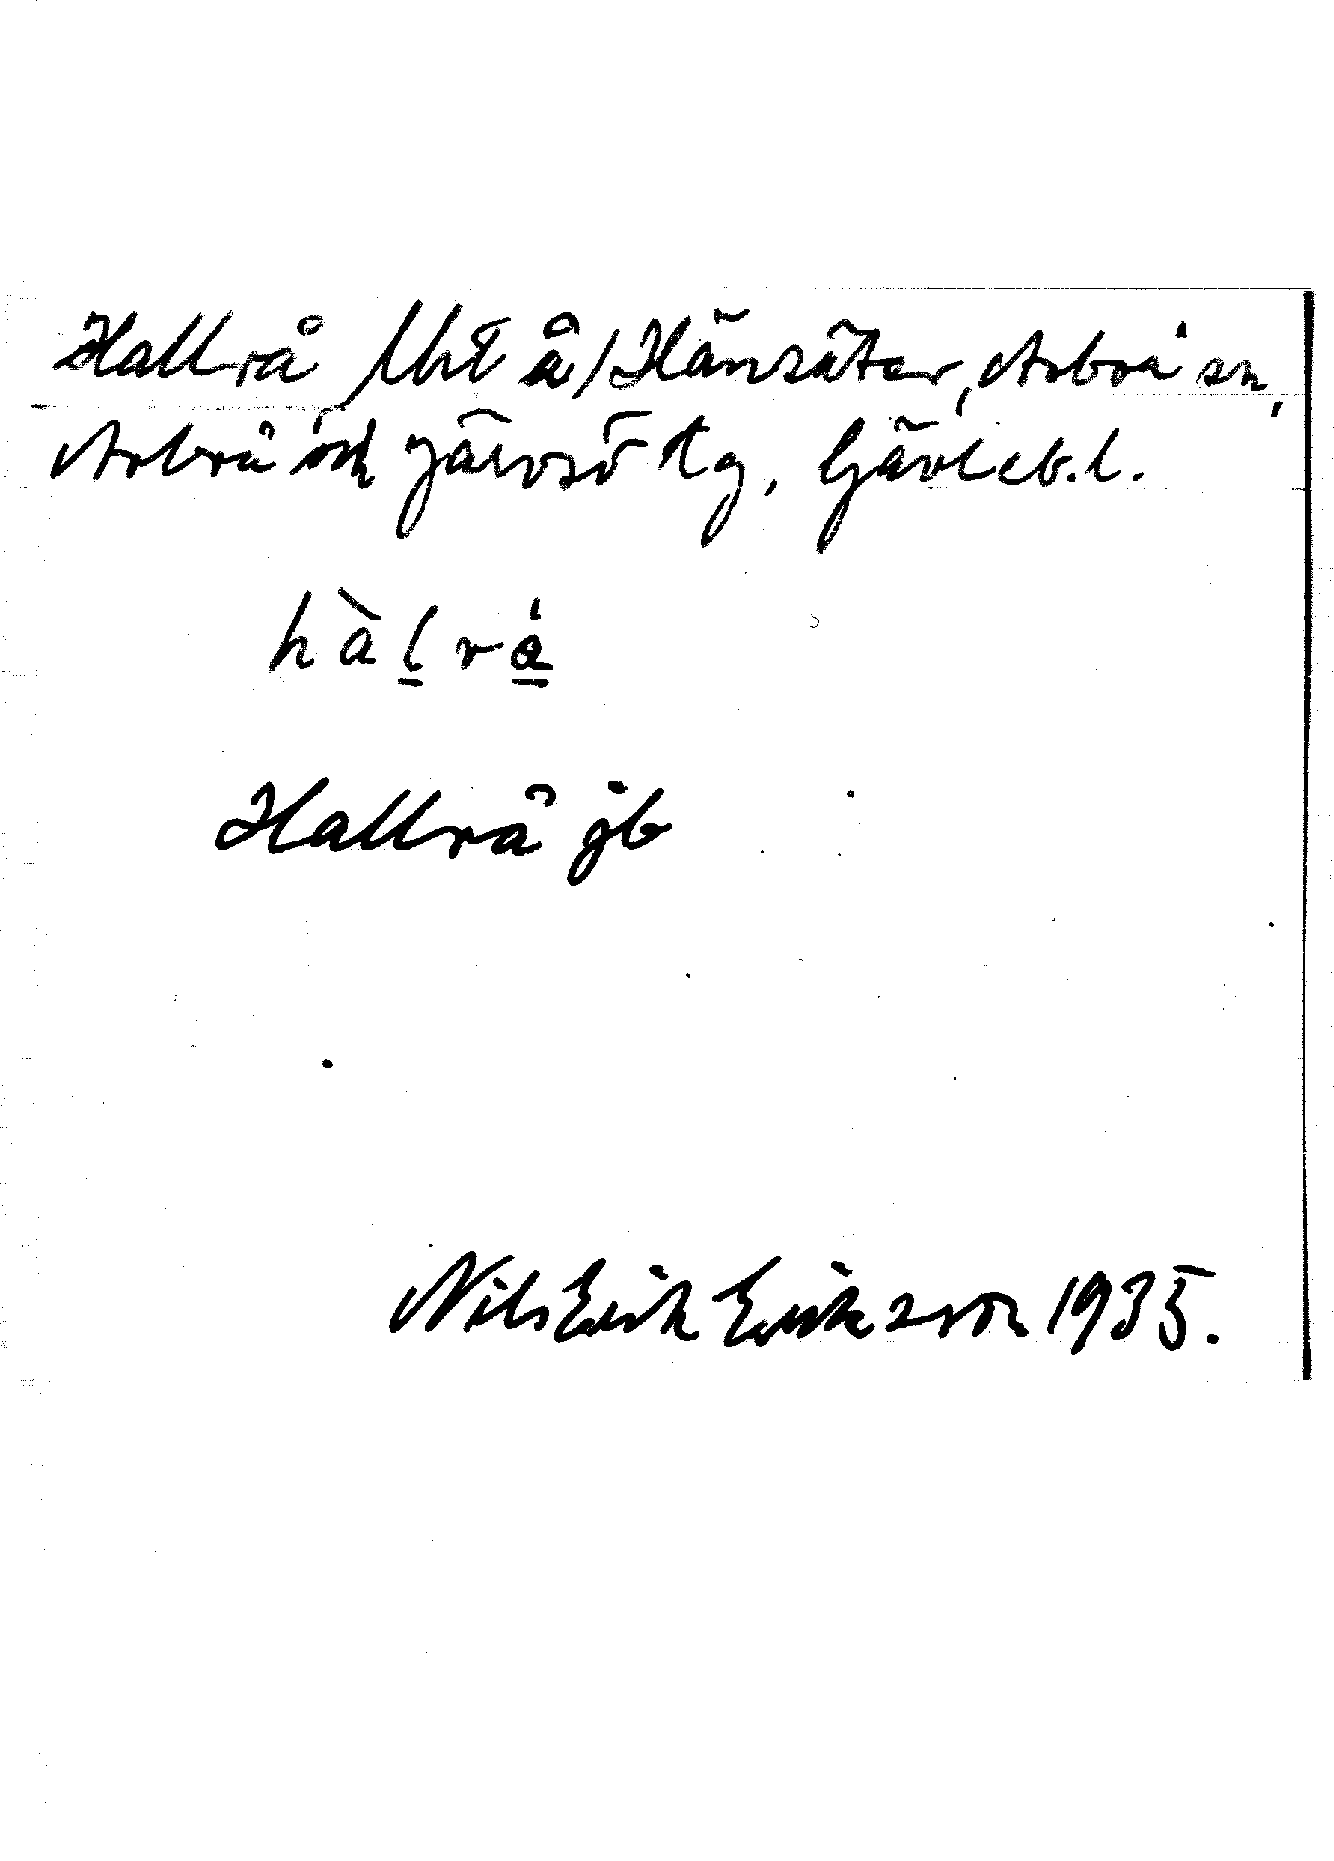 Hallrå /Urå/ Hänsäter, Arbrå sn,
Arbrå och Järvsö tg, Gävleb.l.
hàl̠rå̠
Hallrå jb
Nils Erik Eriksson 1935.